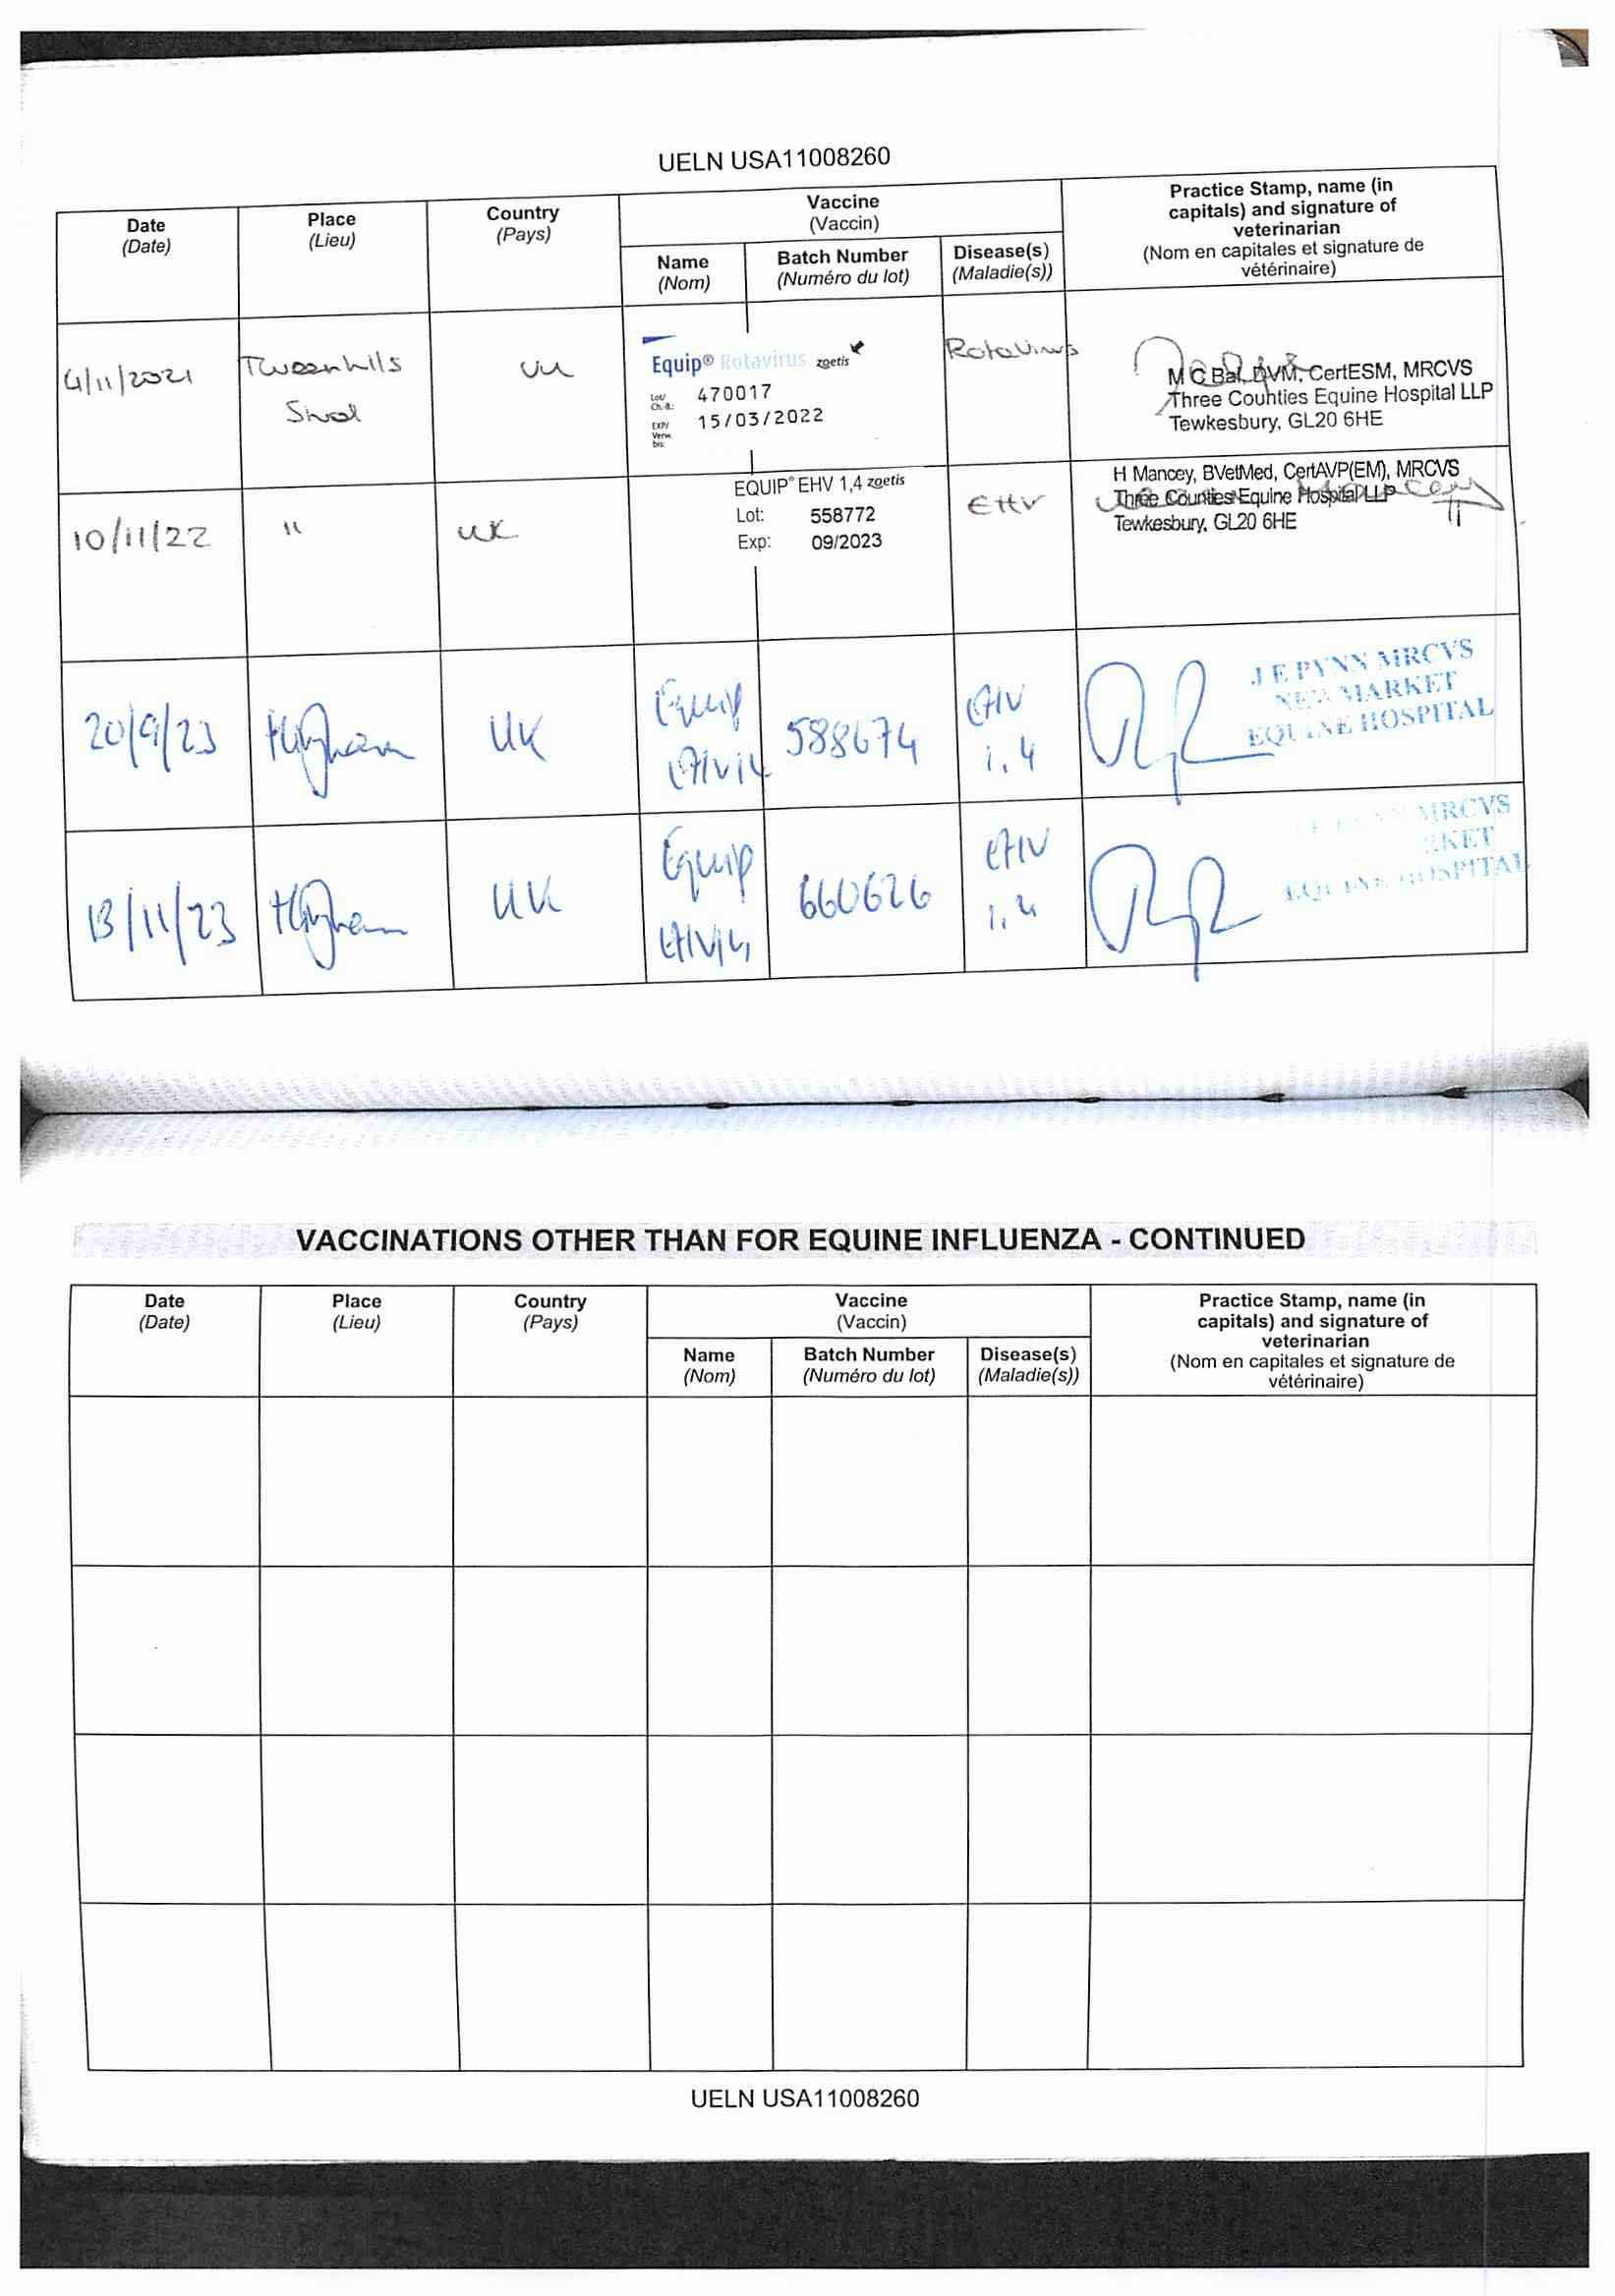 UELN USA11008260
Date
(Date)
Place
(Lieu)
Country
(Pays)
Vaccine
(Vaccin)
Name
(Nom)
Batch Number
(Numéro du lot)
Disease(s)
(Maladie(s))
Practice Stamp, name (in
capitals) and signature of
veterinarian
(Nom en capitales et signature de
vétérinaire)
4/11/2021
Tweenhills
UK
Equip® Rotavirus zoetis
Lot/
Ch.-B.:
470017
EXP/
Verw.
bis:
15/03/2022
Rotavirus
M C Bal, DVM, CertESM, MRCVS
Three Counties Equine Hospital LLP
Tewkesbury, GL20 6HE
10/11/22
"
UK
EQUIP® EHV 1,4 zoetis
Lot: 558772
Exp: 09/2023
EHV
H Mancey, BVetMed, CertAVP(EM), MRCVS
Three Counties Equine Hospital LLP
Tewkesbury, GL20 6HE
20/9/23
Higham
UK
Equip
EHV 1,4
588674
EHV
1,4
J E PYNN MRCVS
NEWMARKET
EQUINE HOSPITAL
13/11/23
Higham
UK
Equip
EHV 1,4
660626
EHV
1,4
PYNN MRCVS
RKET
EQUINE HOSPITAL
VACCINATIONS OTHER THAN FOR EQUINE INFLUENZA - CONTINUED
Date
(Date)
Place
(Lieu)
Country
(Pays)
Vaccine
(Vaccin)
Name
(Nom)
Batch Number
(Numéro du lot)
Disease(s)
(Maladie(s))
Practice Stamp, name (in
capitals) and signature of
veterinarian
(Nom en capitales et signature de
vétérinaire)
UELN USA11008260